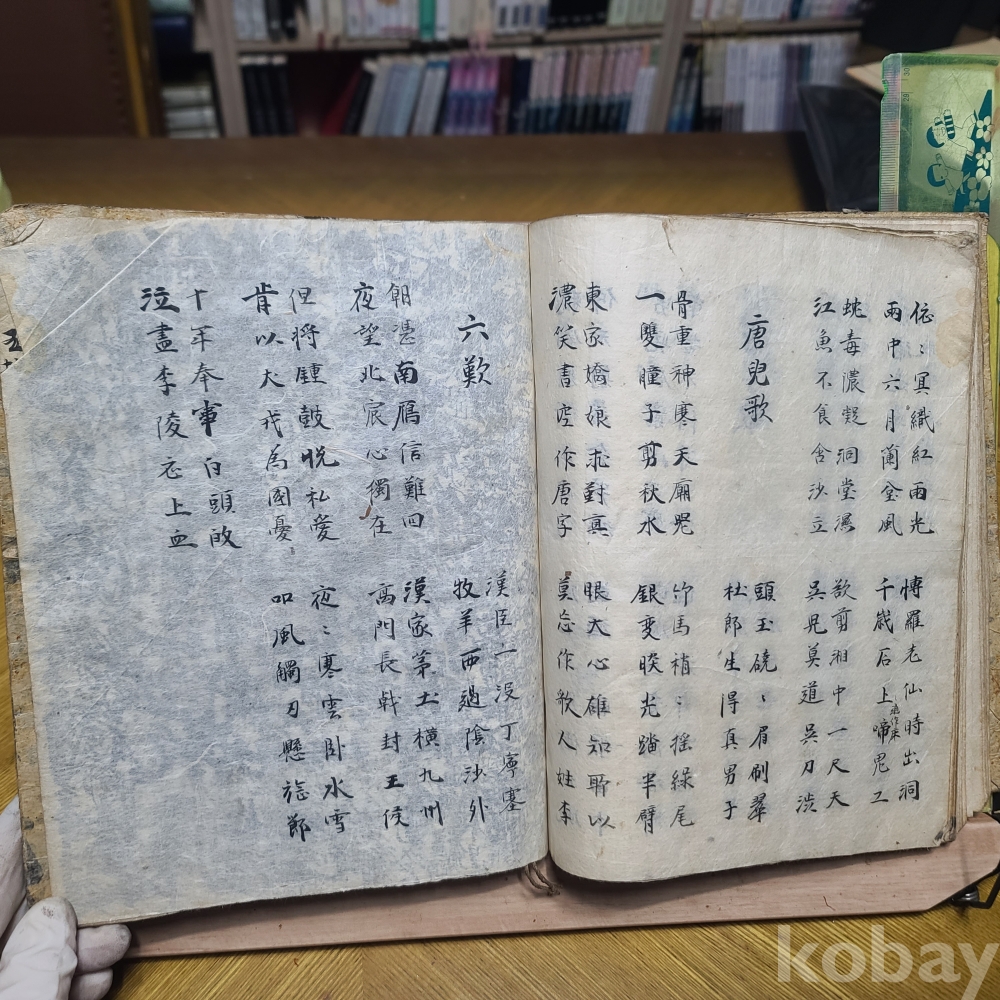 依〻冝織紅雨光
雨中六月蘭㙜風
愽羅老仙時出洞
千歲石上啼鬼工
蛇毒濃凝洞堂濕
江魚不食含沙立
欲剪湘中一尺天
吳兒莫道吳刀澁
唐兒歌
頭玉磽〻眉刷翠
杜郎生得真男子
骨重神寒天廟器
一雙瞳子剪秋水
竹馬梢〻搖綠尾
銀變睒光踏半臂
東家嬌娘求對真
濃笑書空作唐字
眼大心雄知所以
莫忘作歌人姓李
六歎
漢臣一没丁寧塞
牧羊西過陰沙外
朝憑南鴈信難回
夜望北宸心獨在
漢家茅土橫九州
高門長戟封王侯
但將鍾鼓悅私愛
肯以犬戎為國憂
夜〻寒雲卧水雪
叩風觸刃懸旄節
十年奉事白頭
泣盡李陵衣上血
kobay